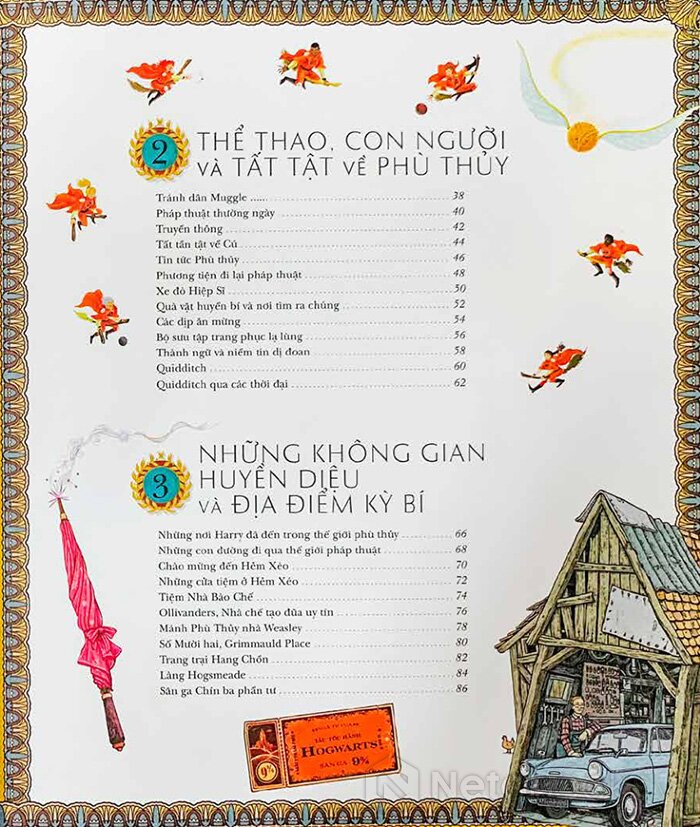 2
THỂ THAO, CON NGƯỜI
VÀ TẤT TẬT VỀ PHÙ THỦY
Tránh dân Muggle ...... 38
Pháp thuật thường ngày 40
Truyền thông 42
Tất tần tật về Cú 44
Tin tức Phù thủy 46
Phương tiện đi lại pháp thuật 48
Xe đò Hiệp Sĩ 50
Quà vặt huyền bí và nơi tìm ra chúng 52
Các dịp ăn mừng 54
Bộ sưu tập trang phục lạ lùng 56
Thành ngữ và niềm tin dị đoan 58
Quidditch 60
Quidditch qua các thời đại 62
3
NHỮNG KHÔNG GIAN
HUYỀN DIỆU
VÀ ĐỊA ĐIỂM KỲ BÍ
Những nơi Harry đã đến trong thế giới phù thủy 66
Những con đường đi qua thế giới pháp thuật 68
Chào mừng đến Hẻm Xéo 70
Những cửa tiệm ở Hẻm Xéo 72
Tiệm Nhà Bào Chế 74
Ollivanders, Nhà chế tạo đũa uy tín 76
Mánh Phù Thủy nhà Weasley 78
Số Mười hai, Grimmauld Place 80
Trang trại Hang Chồn 82
Làng Hogsmeade 84
Sân ga Chín ba phần tư 86
TÀU TỐC HÀNH
HOGWARTS
SÂN GA 9¾
9¾